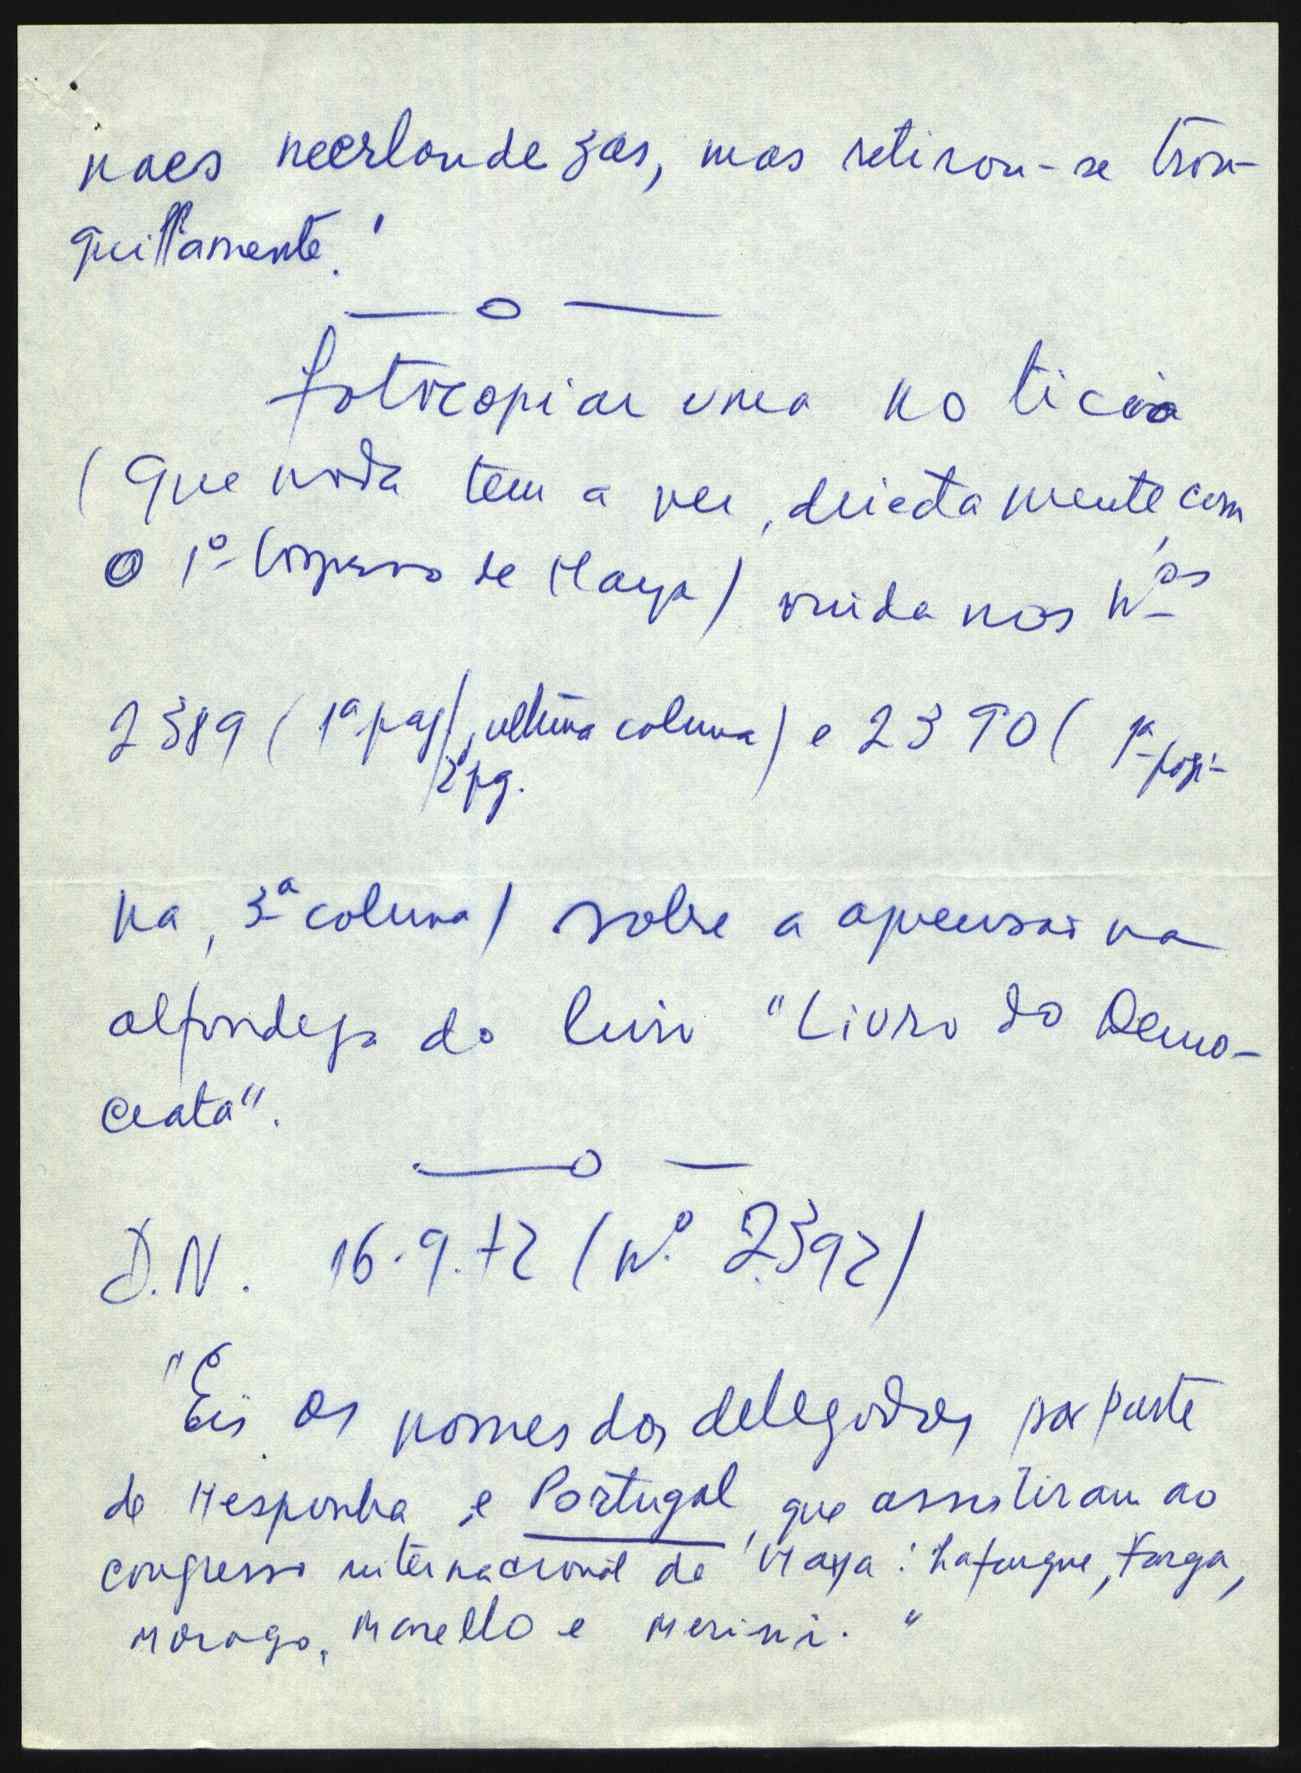 naes neerlandezas, mas retirou-se tran-
quillamente."
—o—
fotocopiar uma noticia
(que nada tem a ver, directamente, com
o 1º Congresso de Haya) vinda nos Nºs
2389 (1ª pag/2ª pg., ultima coluna) e 2390 (1ª pági-
na, 3ª coluna) sobre a apreensão na
alfandega do livro "Livro do Demo-
crata".
—o—
D.N. 16.9.72 (Nº 2392)
"Eis os nomes dos delegados por parte
de Hespanha e Portugal, que assistiram ao
congresso internacional de Haya: Lafargue, Farga,
Morago, Marello e Merini."